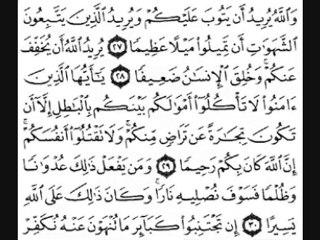 وَٱللَّهُ يُرِيدُ أَن يَتُوبَ عَلَيْكُمْ وَيُرِيدُ ٱلَّذِينَ يَتَّبِعُونَ
ٱلشَّهَوَٰتِ أَن تَمِيلُوا۟ مَيْلًا عَظِيمًا ﴿٢٧﴾ يُرِيدُ ٱللَّهُ أَن يُخَفِّفَ
عَنكُمْ ۚ وَخُلِقَ ٱلْإِنسَٰنُ ضَعِيفًا ﴿٢٨﴾ يَٰٓأَيُّهَا ٱلَّذِينَ
ءَامَنُوا۟ لَا تَأْكُلُوٓا۟ أَمْوَٰلَكُم بَيْنَكُم بِٱلْبَٰطِلِ إِلَّآ أَن
تَكُونَ تِجَٰرَةً عَن تَرَاضٍ مِّنكُمْ ۚ وَلَا تَقْتُلُوٓا۟ أَنفُسَكُمْ ۚ
إِنَّ ٱللَّهَ كَانَ بِكُمْ رَحِيمًا ﴿٢٩﴾ وَمَن يَفْعَلْ ذَٰلِكَ عُدْوَٰنًا
وَظُلْمًا فَسَوْفَ نُصْلِيهِ نَارًا ۚ وَكَانَ ذَٰلِكَ عَلَى ٱللَّهِ
يَسِيرًا ﴿٣٠﴾ إِن تَجْتَنِبُوا۟ كَبَآئِرَ مَا تُنْهَوْنَ عَنْهُ نُكَفِّرْ